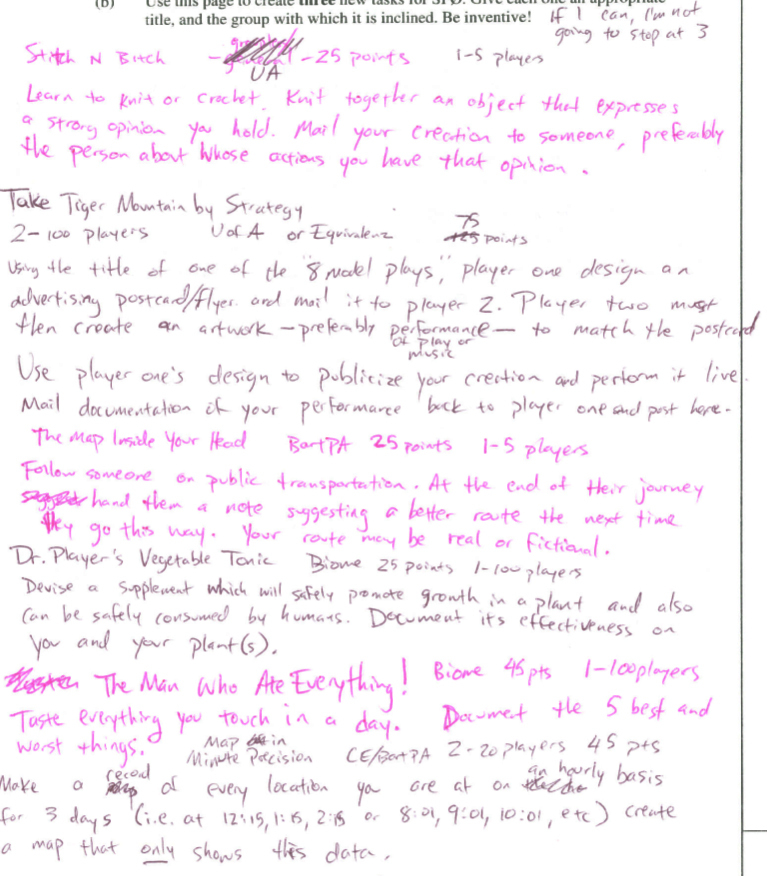 (b) Use this page to create three new tasks for SFØ. Give each one an appropriate
title, and the group with which it is inclined. Be inventive! If I can, I'm not
going to stop at 3
Stitch N Bitch - - 25 points 1-5 players
UA
Learn to knit or crochet. Knit together an object that expresses
a strong opinion you hold. Mail your creation to someone, preferably
the person about whose actions you have that opinion.
Take Tiger Mountain by Strategy
2-100 players U of A or Equivalenz 75 points
Using the title of one of the "8 model plays", player one design an
advertising postcard/flyer and mail it to player 2. Player two must
then create an artwork - preferably performance - to match the postcard
of play or
music
Use player one's design to publicize your creation and perform it live.
Mail documentation of your performance back to player one and post here.
The Map Inside Your Head BartPA 25 points 1-5 players
Follow someone on public transportation. At the end of their journey
hand them a note suggesting a better route the next time
they go this way. Your route may be real or fictional.
Dr. Player's Vegetable Tonic Biome 25 points 1-100 players
Devise a supplement which will safely promote growth in a plant and also
can be safely consumed by humans. Document its effectiveness on
you and your plant(s).
The Man Who Ate Everything! Biome 45 pts 1-100 players
Taste everything you touch in a day. Document the 5 best and
worst things.
Map in
Minute Precision CE/BartPA 2-20 players 45 pts
Make a record of every location you are at on an hourly basis
for 3 days (i.e. at 12:15, 1:15, 2:15 or 8:01, 9:01, 10:01, etc) create
a map that only shows this data.